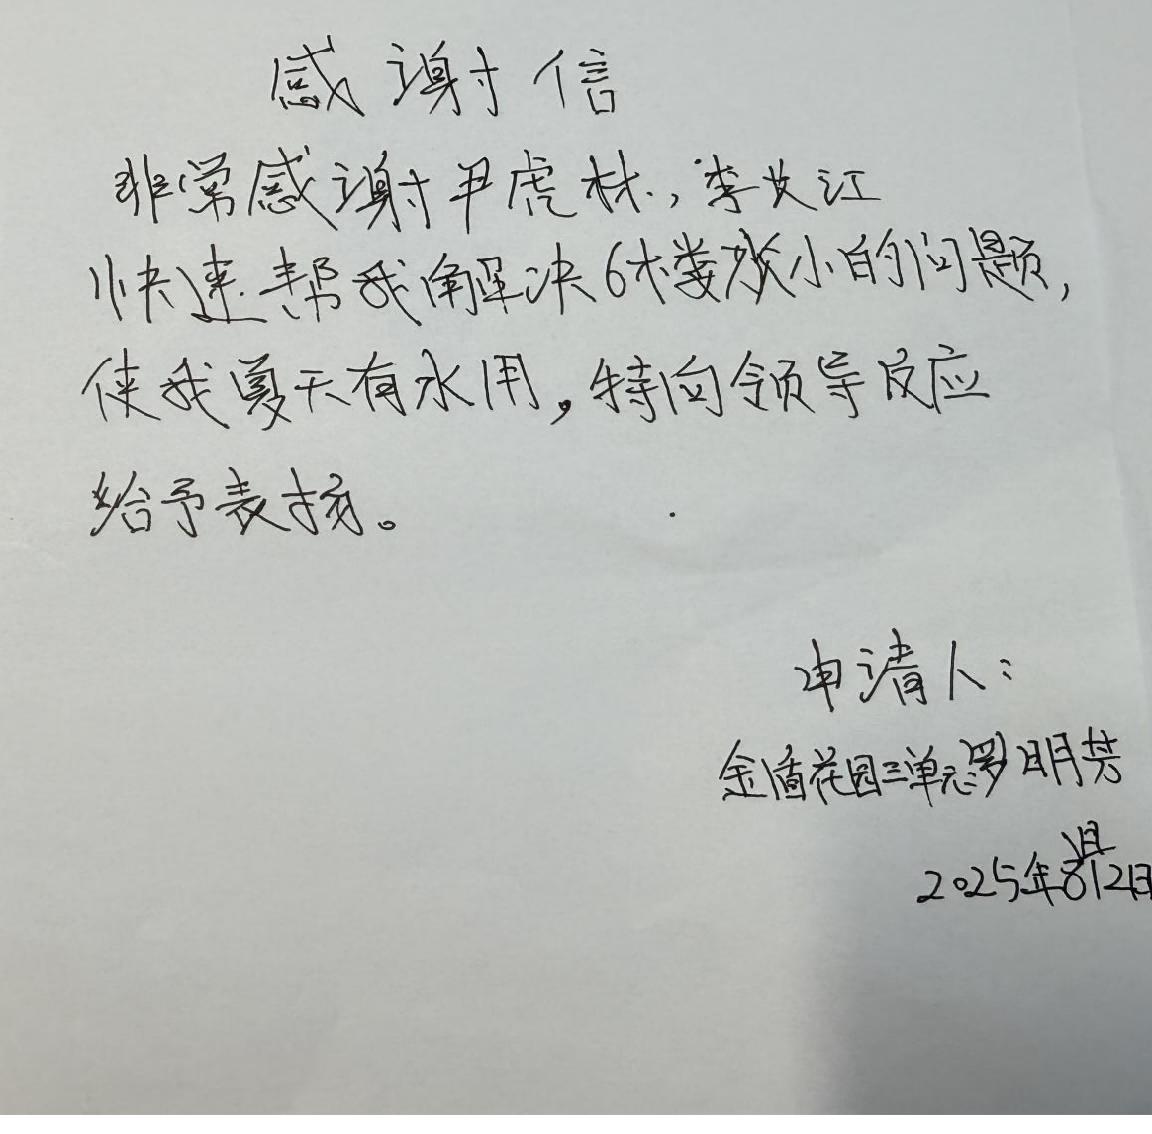 感谢信
非常感谢尹虎林,李文江
快速帮我解决6木娄水小的问题,
使我夏天有水用。特向领导反应
给予表扬。
申请人:
金盾花园三单元罗明芸
2025年8月12日